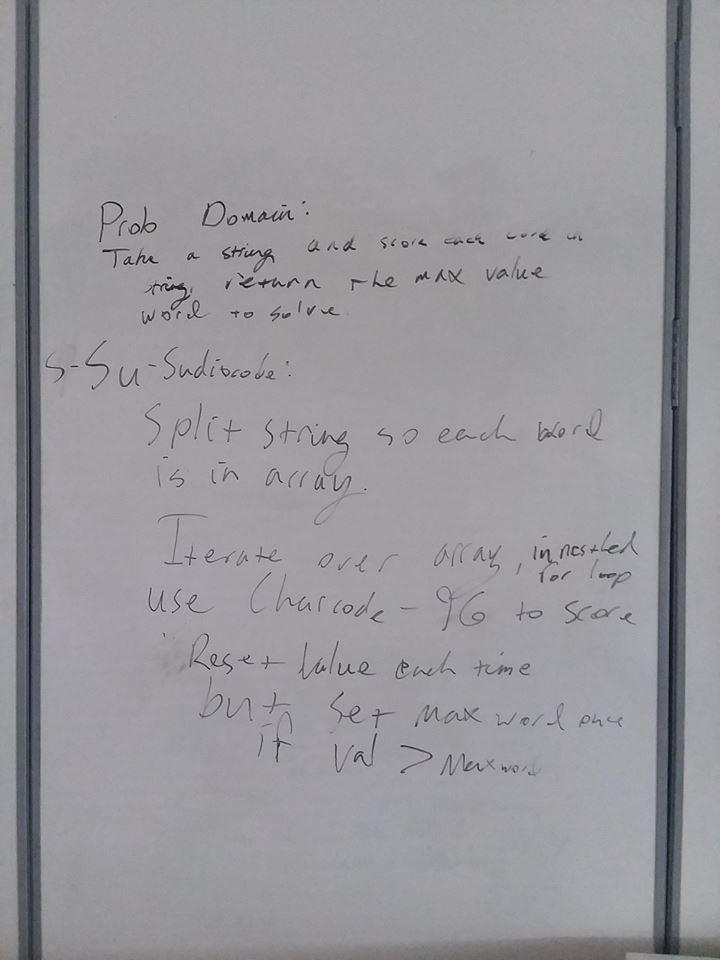 Prob Domain:
Take a string and score each word in
string, return the max value
word to solve.
S-Su-Sudiocode:
Split string so each word
is in array.
Iterate over array, in nested
for loop
use Charcode - 96 to score
Reset value each time
but set max word once
if val > Maxword